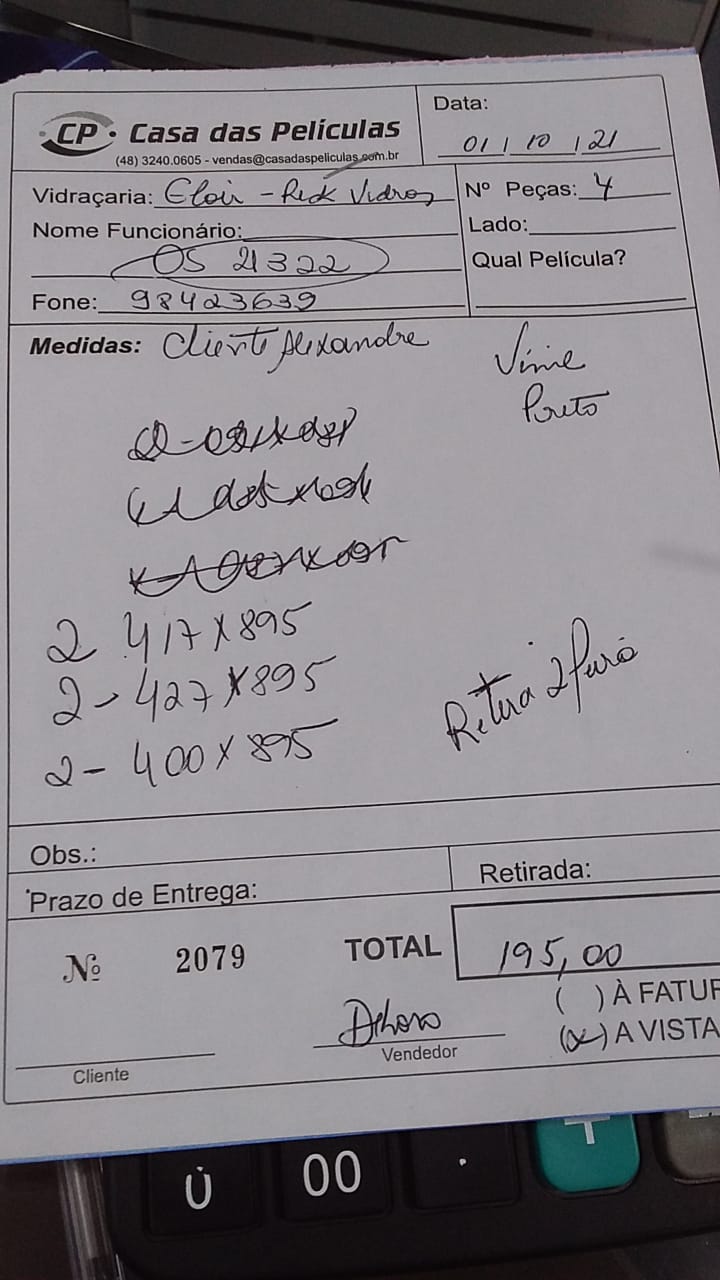 CP Casa das Películas
(48) 3240.0605 - vendas@casadaspeliculas.com.br
Data:
01 / 10 / 21
Vidraçaria: Eloir - Red Vidros
Nº Peças: 4
Nome Funcionário:
Lado:
OS 21322
Qual Película?
Fone: 98423639
Medidas: Cliente Alexandre
Vinil
Preto
2 417 X 895
2 - 427 X 895
2 - 400 X 895
Retira
Obs.:
Prazo de Entrega:
Retirada:
Nº 2079
TOTAL 195,00
( ) À FATUR
(x) A VISTA
Vendedor
Cliente
0 00 .